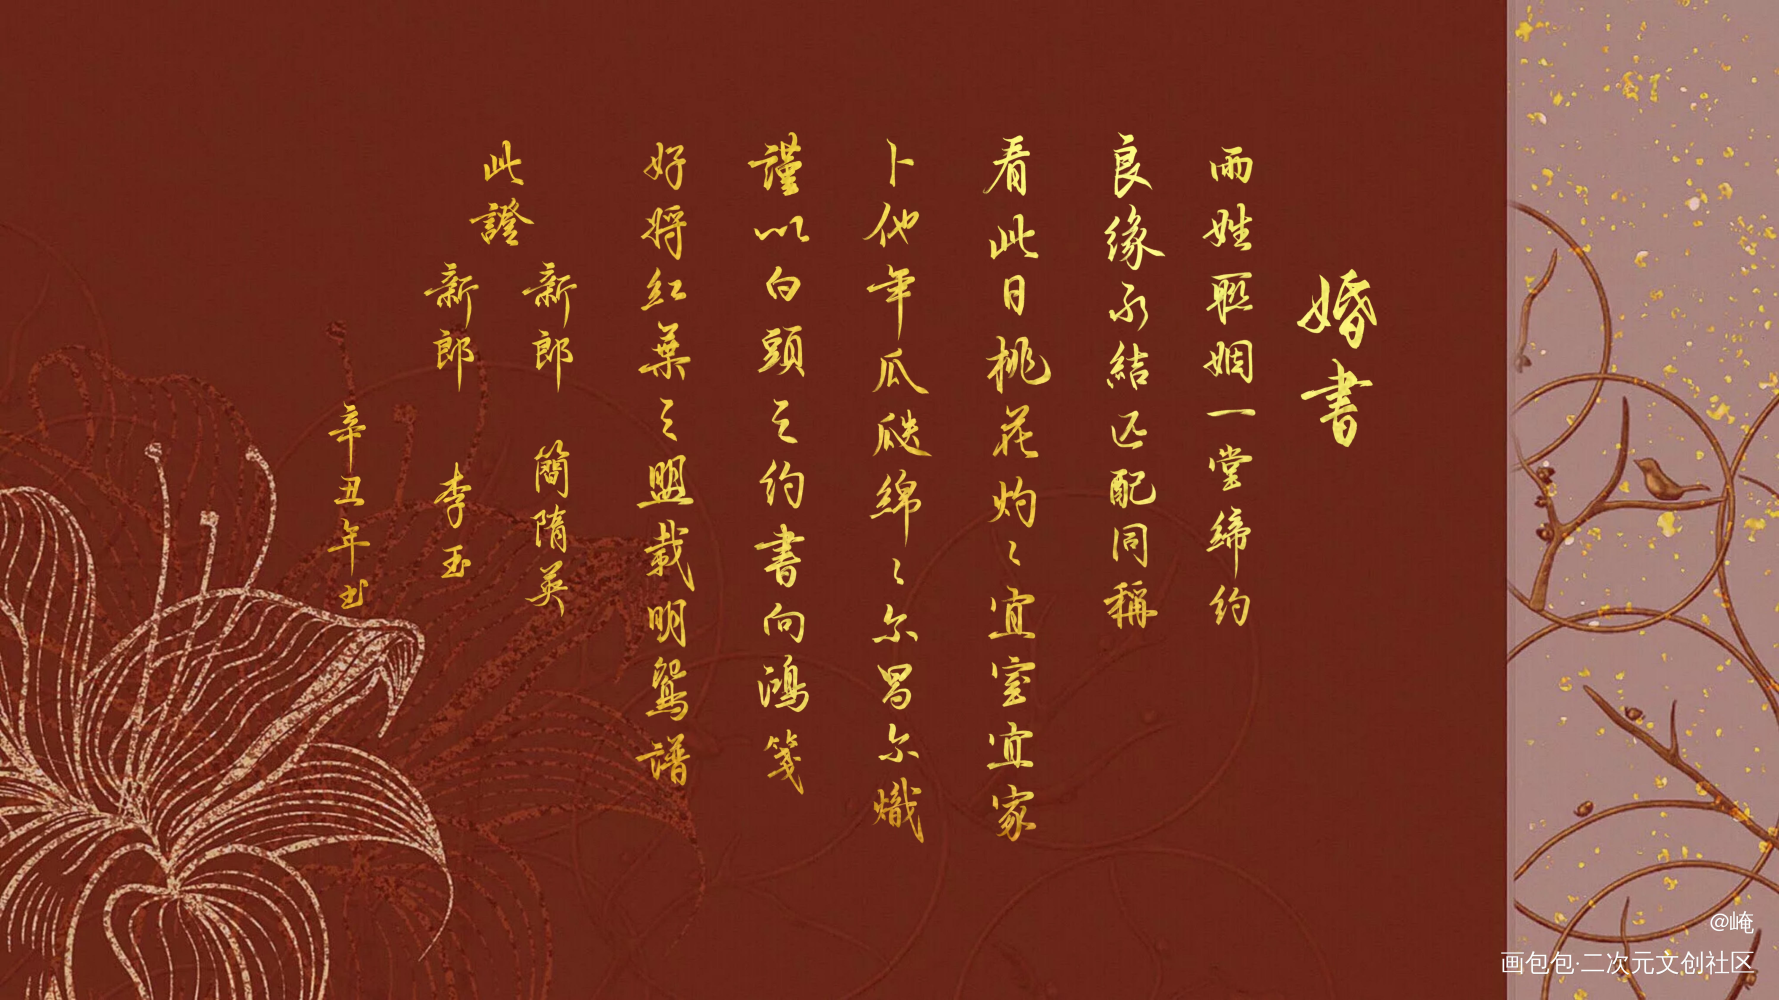 婚書
兩姓聯姻一堂締約
良緣永結匹配同稱
看此日桃花灼〻宜室宜家
卜他年瓜瓞綿〻尔昌尔熾
謹以白頭之約書向鴻箋
好將紅葉之盟載明鴛譜
此證
新郎 簡隋英
新郎 李玉
辛丑年书
@崦
画包包·二次元文创社区